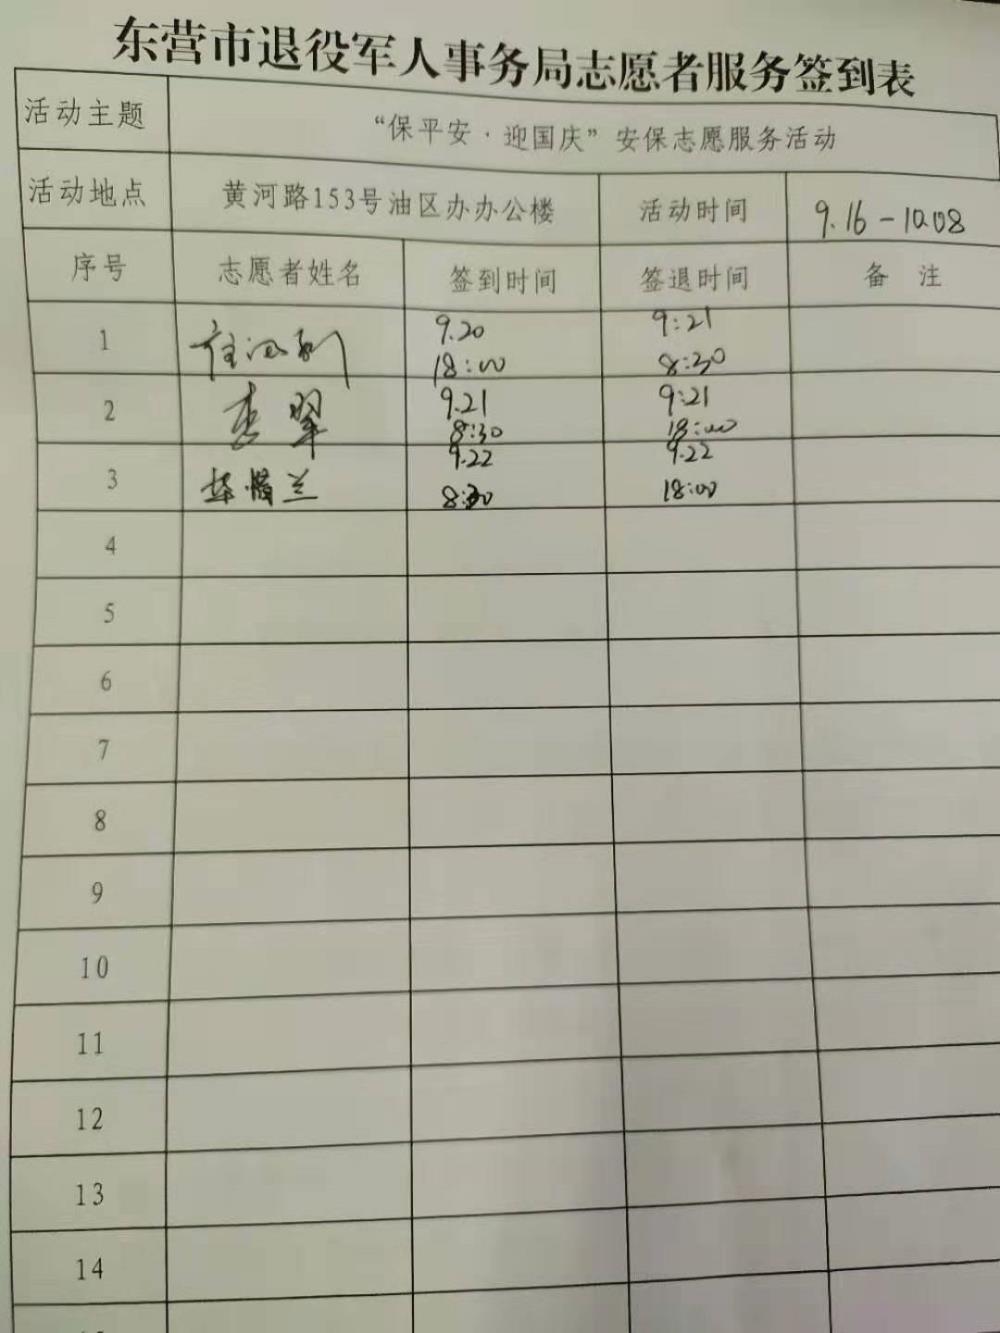 东营市退役军人事务局志愿者服务签到表
活动主题 “保平安·迎国庆”安保志愿服务活动
活动地点 黄河路153号油区办办公楼 活动时间 9.16-10.08
序号 志愿者姓名 签到时间 签退时间 备 注
1 9.20 9:21
18:00 8:30
2 李翠 9.21 9:21
8:30 18:00
3 兰 9.22 9.22
8:30 18:00
4
5
6
7
8
9
10
11
12
13
14